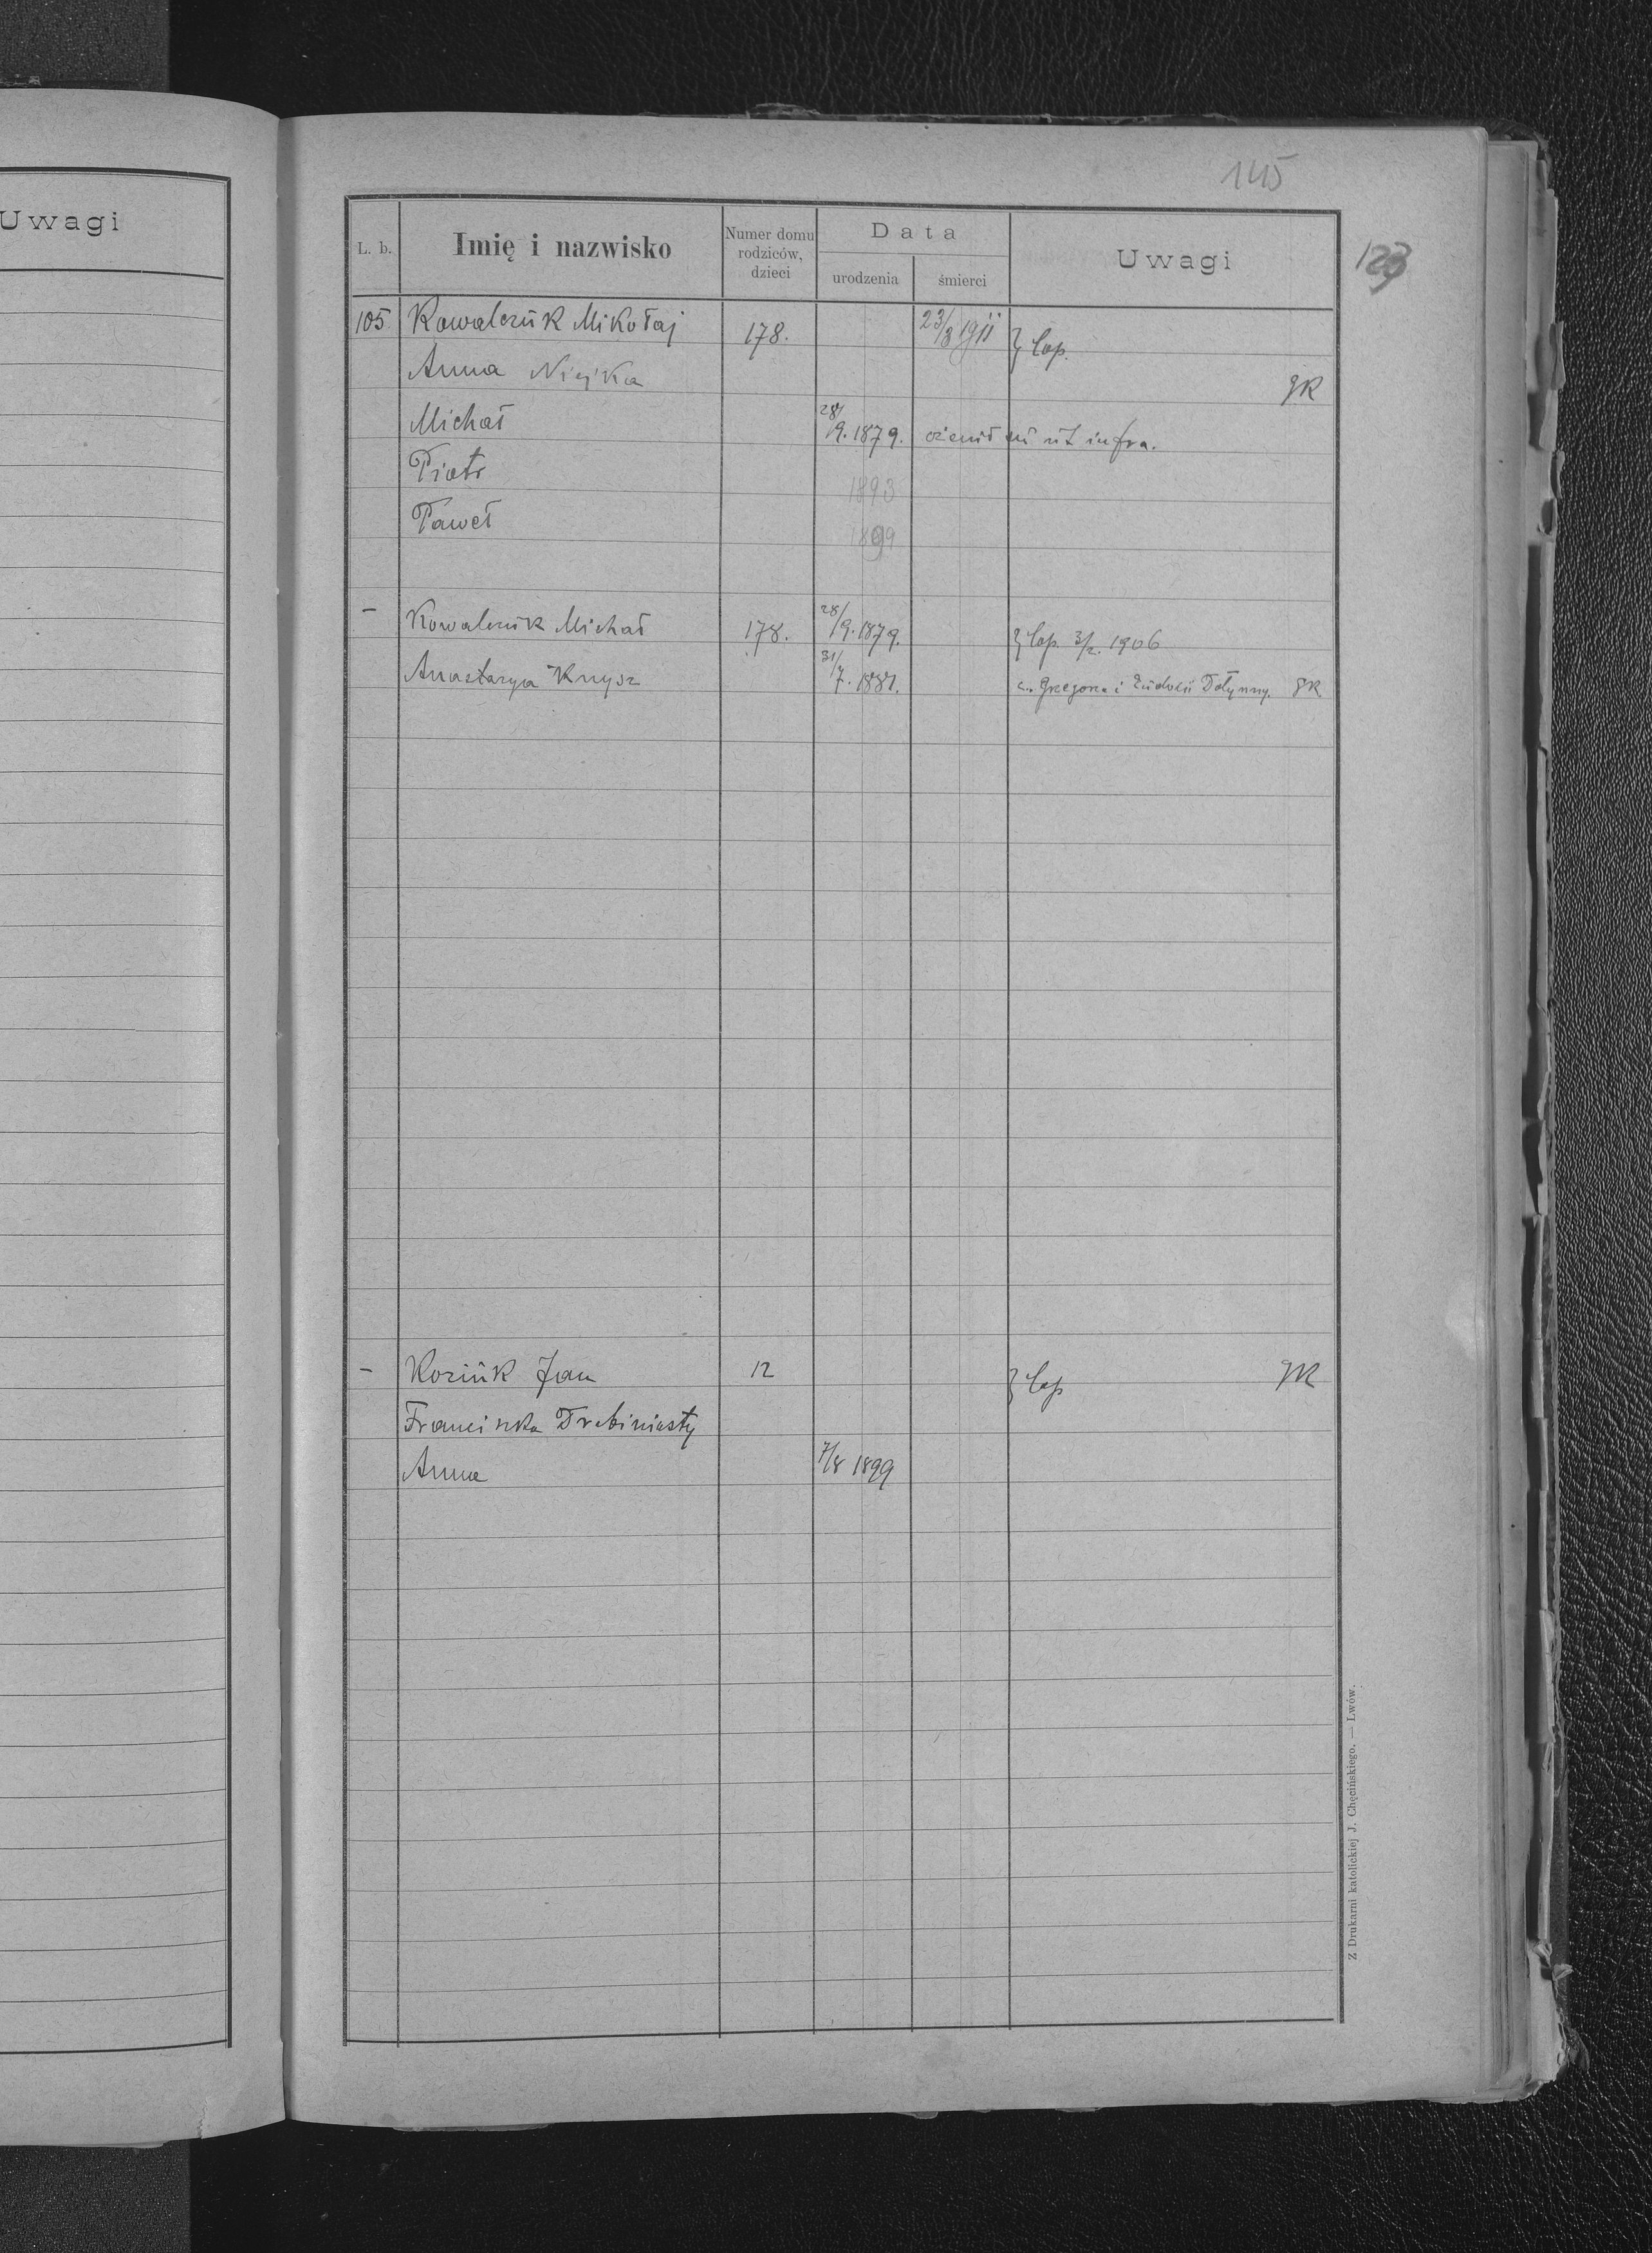 Uwagi
145
L. b. Imię i nazwisko Numer domu rodziców, dzieci Data urodzenia śmierci Uwagi
123
105 Kowalczuk Mikołaj 178. 23/8 1911 } Cop.
Anna Niejka gR
Michał 28/9. 1879. ożenił ut infra.
Piotr 1893
Paweł 1899
– Kowalczuk Michał 178. 28/9. 1879. } Cop. 3/2. 1906
Anastazya Knysz 31/7. 1881. c. Grzegorza i Eudokii Dołynny. gR
– Koziuk Jan 12 } Cop gR
Franciszka Trebiniasty
Anna 7/8 1899
Z Drukarni katolickiej J. Chęcińskiego. — Lwów.